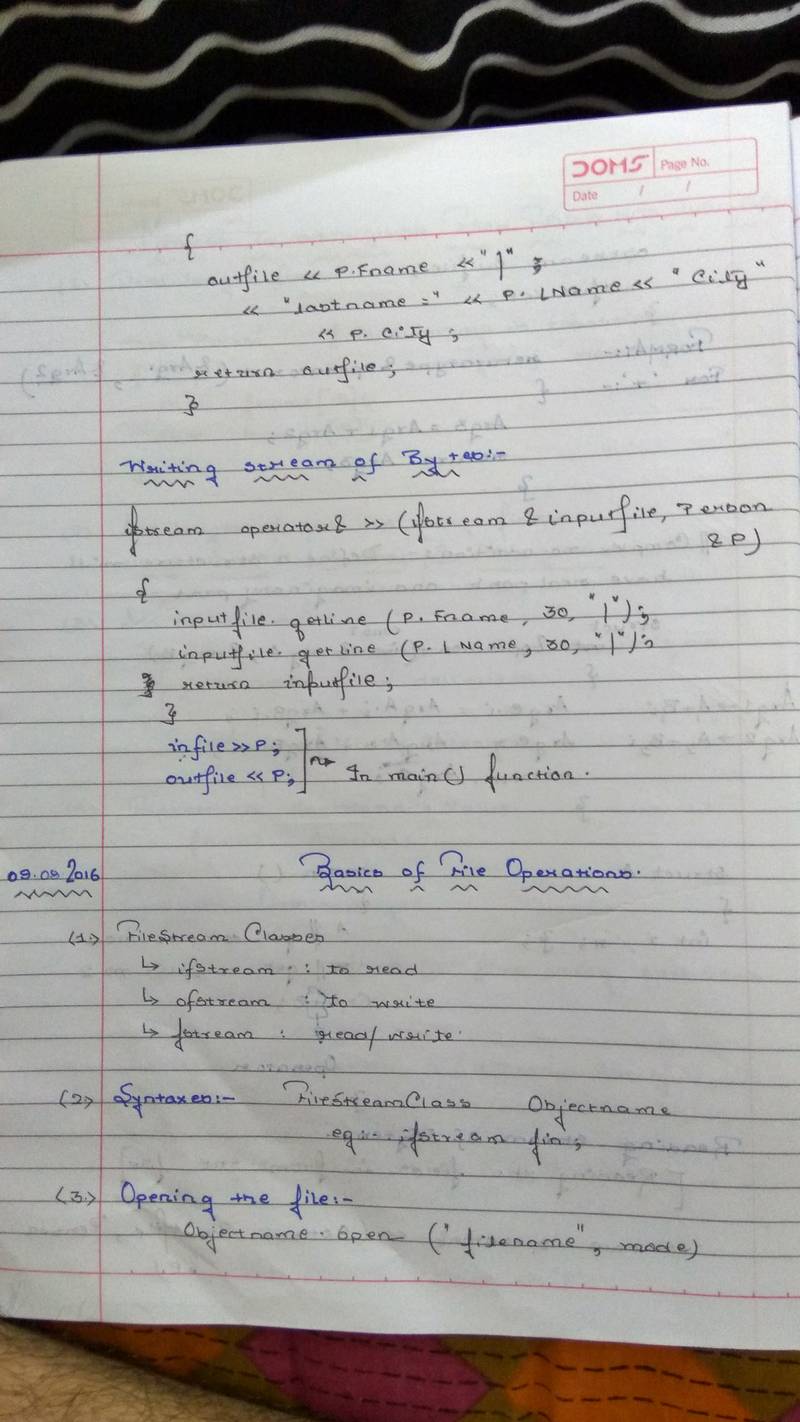 DOMS Page No.
Date / /
{
outfile << P.Fname << "|" ;
<< "lastname =" << P.LName << "City"
<< P.City;
return outfile;
}
Writing stream of Bytes:-
ifstream operator& >> (ifstream & inputfile, Person
& P)
{
inputfile.getline (P.Fname, 30, "|");
inputfile.getline (P.LName, 30, "|");
return inputfile;
}
infile >> P;
outfile << P; In main() function.
09.09.2016 Basics of File Operations.
(1) FileStream Classes
↳ ifstream : to read
↳ ofstream : to write
↳ fstream : read/write.
(2) Syntaxes:- FileStreamClass Objectname
eg:- ifstream fin;
(3.) Opening the file:-
Objectname.open ("filename", mode)